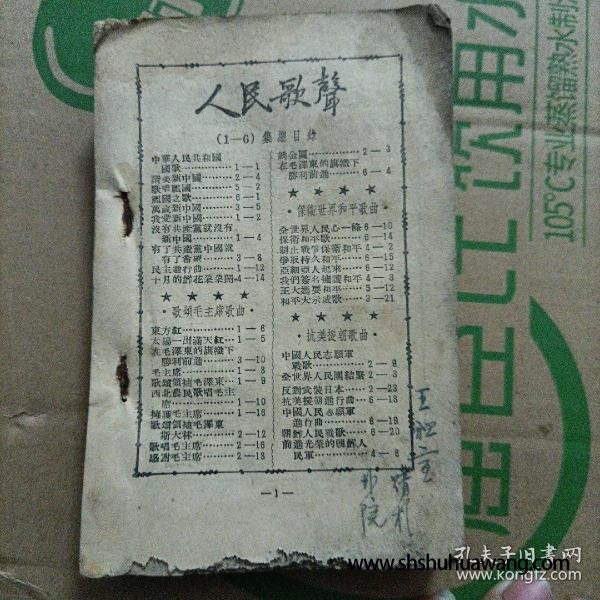 人民歌聲
（1—6）集總目錄
中華人民共和國
國歌⋯⋯1—1
讚美新中國⋯⋯2—4
歌唱祖國⋯⋯5—2
祖國之歌⋯⋯6—1
萬歲新中國⋯⋯3—5
我愛新中國⋯⋯1—2
沒有共產黨就沒有
新中國⋯⋯1—4
有了共產黨中國就
有了希望⋯⋯3—8
民主進行曲⋯⋯1—12
十月的鮮花朵朵開—4—14
★ ★ ★ ★
·歌頌毛主席歌曲·
東方紅⋯⋯1—6
太陽一出滿天紅⋯⋯1—5
在毛澤東的旗幟下
勝利前進⋯⋯3—10
毛主席⋯⋯1—8
歌頌領袖毛澤東⋯⋯1—9
西北農民歌唱毛主
席⋯⋯1—10
擁護毛主席⋯⋯1—16
歌頌領袖毛澤東
斯大林⋯⋯2—12
歌唱毛主席⋯⋯2—16
感謝毛主席⋯⋯2—18
金圖⋯⋯2—3
在毛澤東的旗幟下
勝利前進⋯⋯6—4
★ ★ ★ ★
·保衛世界和平歌曲·
全世界人民心一條 6—10
保衛和平歌⋯⋯6—14
制止戰爭保衛和平 4—2
爭取持久和平⋯⋯6—15
亞細亞人起來⋯⋯6—12
我們簽名擁護和平 4—3
五大進要和平⋯⋯5—12
和平大示威歌⋯⋯3—21
★ ★ ★ ★
·抗美援朝歌曲·
中國人民志願軍
戰歌⋯⋯2—8
全世界人民團結緊 2—3
反對武裝日本⋯⋯2—23
抗美援朝進行曲⋯⋯6—16
中國人民志願軍
進行曲⋯⋯6—18
朝鮮人民戰歌⋯⋯6—20
前進光榮的朝鮮人
民軍⋯⋯4—6
—1—
王
院
飲用水
105°C专业蒸馏热水制
www.shshuhuawang.com
孔夫子旧書网
www.kongfz.com